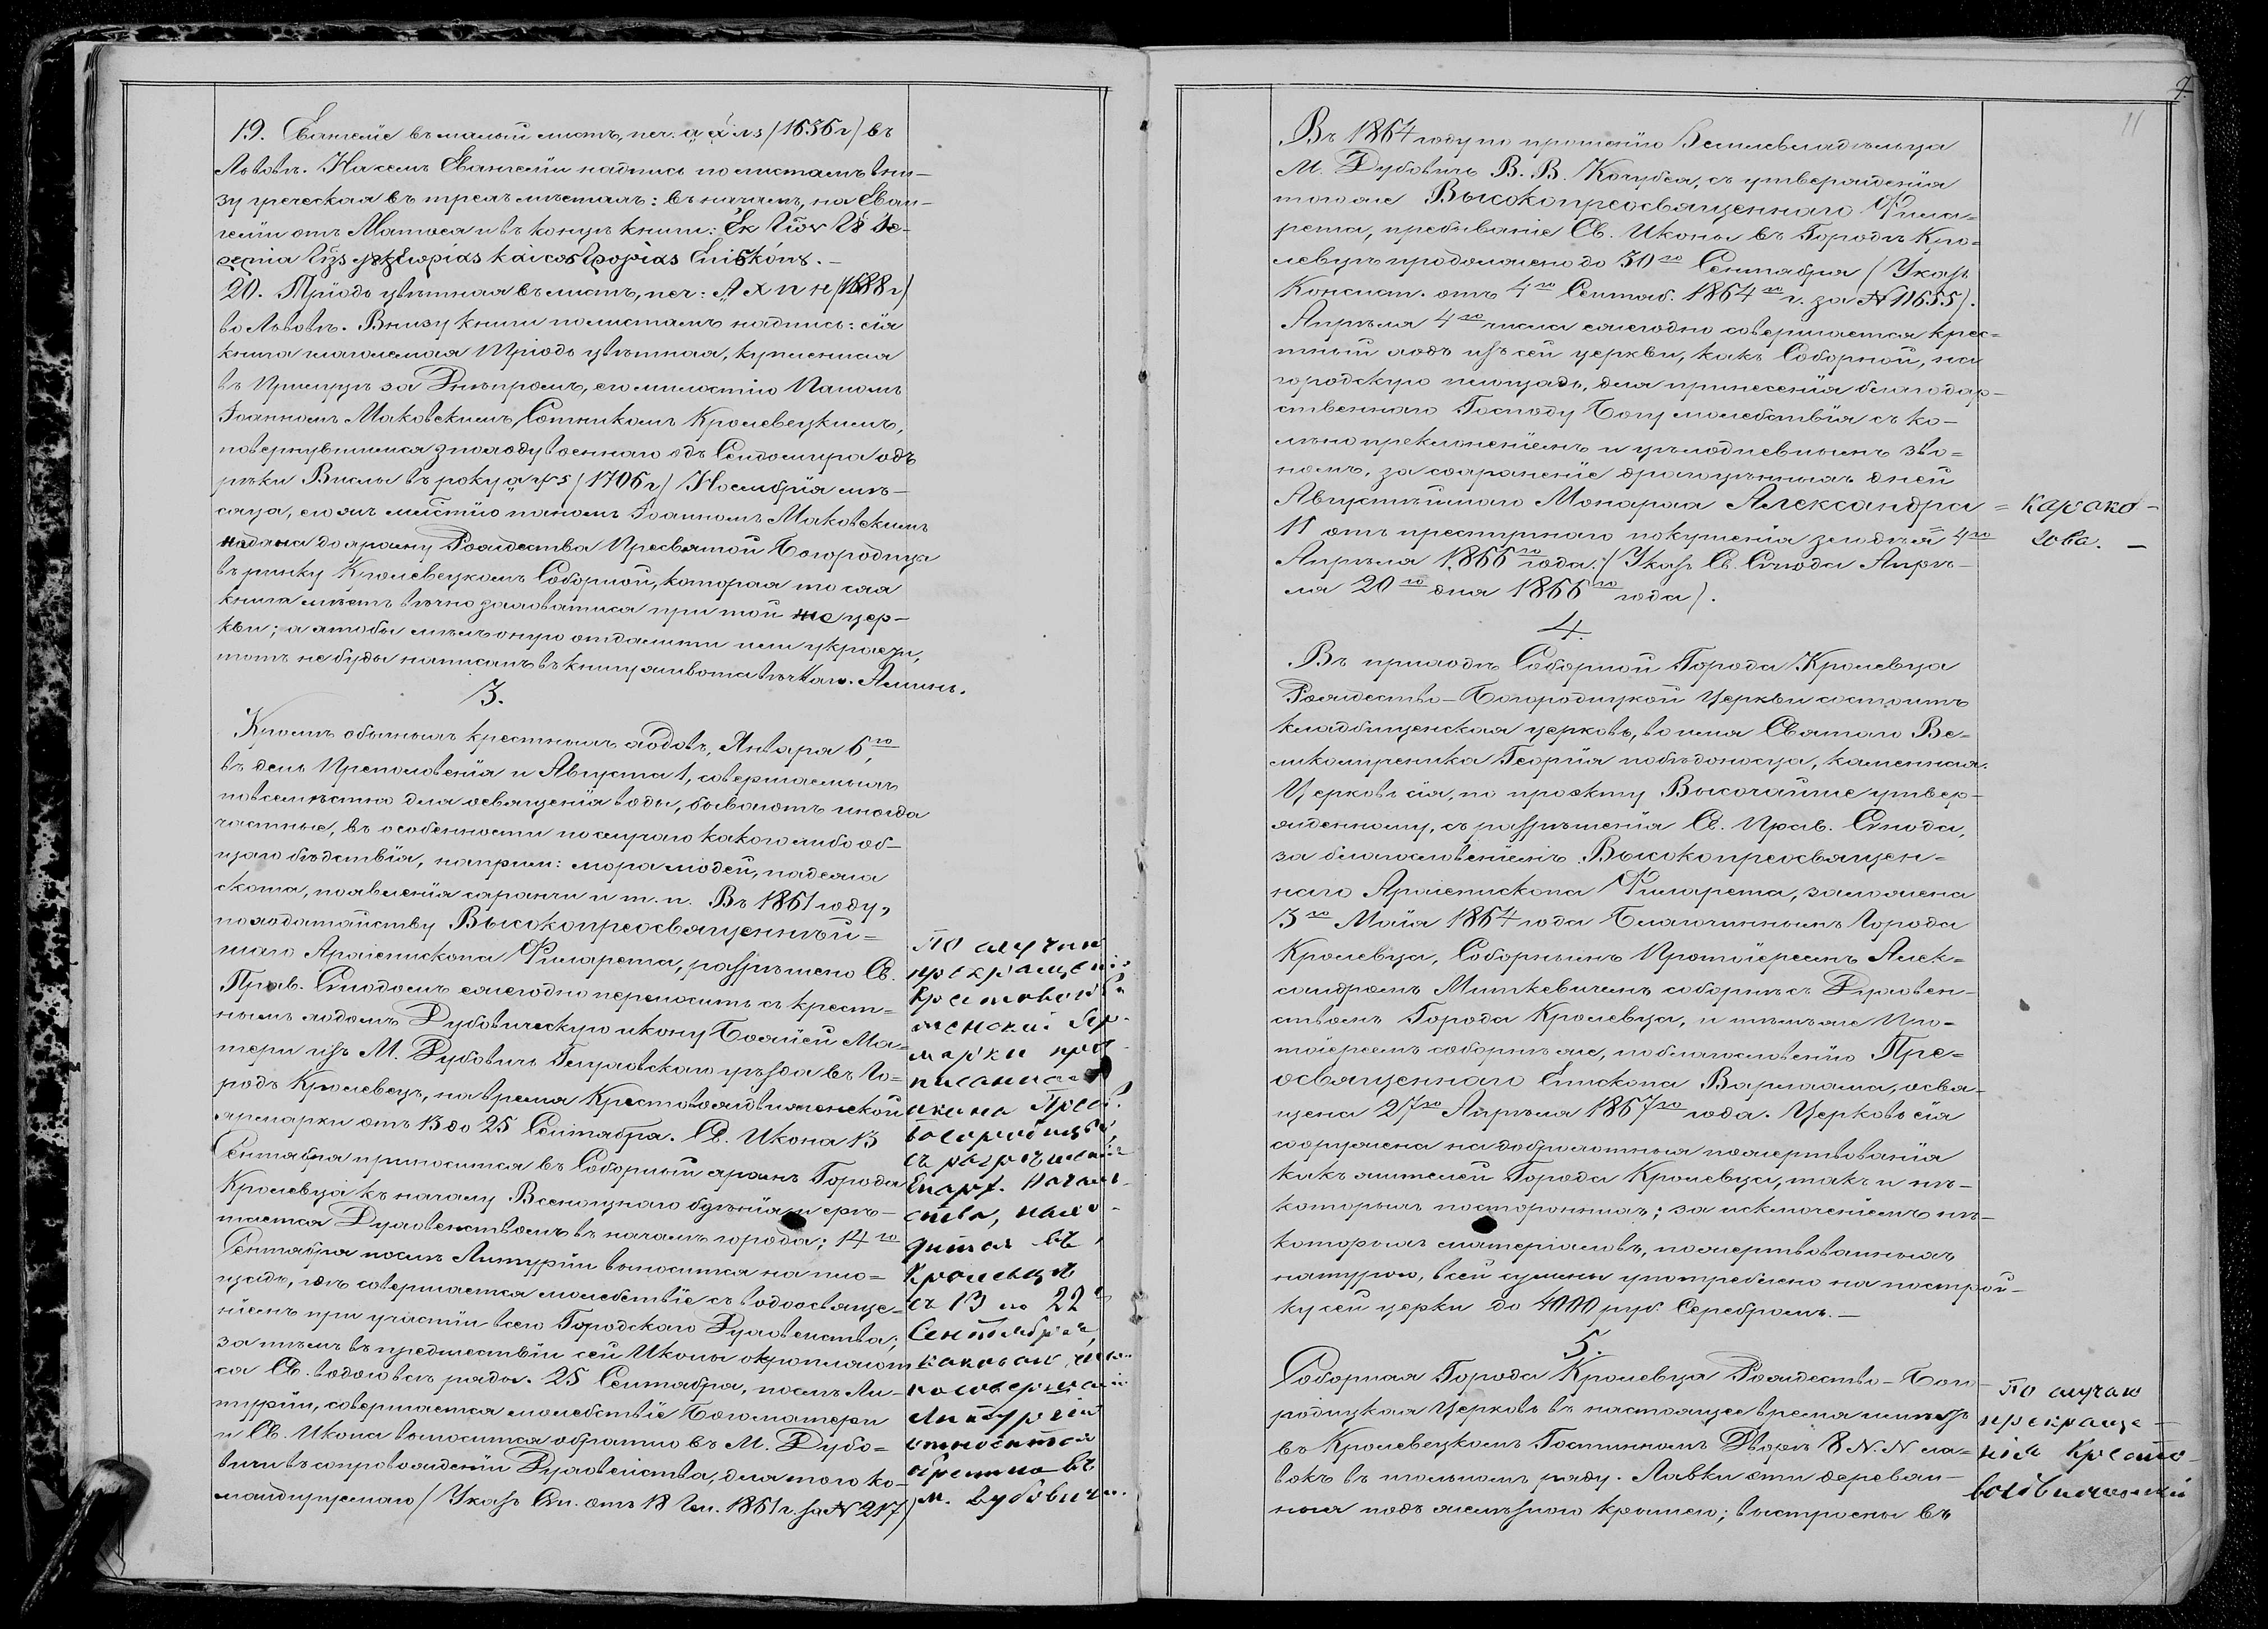 19. Евангеліе въ малый листъ, печ: а҂ х҃ л s (1636 г) въ
Львовѣ. На семъ Евангеліи надпись по листамъ вни-
зу греческая въ трехъ мѣстахъ: въ началѣ, на Еван-
геліи отъ Матѳея и въ концѣ книги:
20. Тріодь цвѣтная въ листъ, печ: А Х П Н (1688 г)
во Львовѣ. Внизу книги по листамъ надпись: сія
книга глаголемая Тріодь цвѣтная, купленная
въ Прилуцѣ за Днѣпромъ, его милостію Паномъ
Іоанномъ Маковскимъ, Сотникомъ Кролевецкимъ,
повернувшимся з походу военнаго одъ Сендомира одъ
рѣки Вислы въ року а҂ѱs (1706 г) Ноемврія мѣ-
сяца, его жъ милстію паномъ Іоанномъ Маковскимъ
надана до храму Рождества Пресвятой Богородицы
въ рынку Кролевецкомъ Соборной, которая то сая
книга маетъ вѣчно заховатися при той же цер-
кви; а хтобы мѣлъ оную отдалити или украсти,
тотъ не буди написанъ въ книгу живота вѣчнаго. Аминь.
3.
Кромѣ обычныхъ крестныхъ ходовъ, Января 6го,
въ день Преполовенія и Августа 1, совершаемыхъ
повсемѣстно для освященія воды, бываютъ иногда
частные, въ особенности по случаю какого либо об-
щаго бѣдствія, наприм: мора людей, падежа
скота, появленія саранчи и т. п. Въ 1861 году,
по ходатайству Высокопреосвященнѣй=
шаго Архіепископа Филарета, разрѣшено Св.
Прав. Синодомъ ежегодно переносить съ крест=
нымъ ходомъ Дубовическую икону Божіей Ма=
тери изъ М. Дубовичъ Глуховскаго уѣзда въ Го=
родъ Кролевецъ, на время Крестовоздвиженской
ярмарки отъ 13 до 25 Сентября. Св. Икона 13
Сентября приносится въ Соборный храмъ Города
Кролевца къ началу Всенощнаго бдѣнія и срѣ-
тается Духовенствомъ въ началѣ города; 14го
Сентября послѣ Литургіи выносится на пло=
щадь, гдѣ совершается молебствіе съ водоосвяще=
ніемъ при участіи всего Городскаго Духовенства;
за тѣмъ въ предшествіи сей Иконы окропляют
ся Св. водою всѣ ряды. 25 Сентября, послѣ Ли-
тургіи, совершается молебствіе Богоматери
и Св. Икона выносится обратно въ М. Дубо=
вичи въ сопровожденіи Духовенства, для того ко-
мандируемаго (Указъ Син. отъ 18 1861 г. за № 217)
По случаю
прекращенія
Крестовоздви
женской Яр-
марки
икона Пресв.
Богородицы
съ разрѣшенія
Епарх. Началь-
ства, нахо-
дится въ
Кролевцѣ
съ 13 по 22е
Сентября,
по совершеніи
Литургіи
относится
обратно въ
м. Дубовичи.
11
Въ 1864 году по прошенію Землевладѣльца
М. Дубовичъ В. В. Кочубея, съ утвержденія
того же Высокопреосвященнаго Фила=
рета, пребываніе Св. Иконы въ Городѣ Кро=
левцѣ продолжено до 30го Сентября (Указъ
Консист. отъ 4го Сентяб. 1864го г. за № 11655).
Апрѣля 4го числа ежегодно совершается крес=
тный ходъ изъ сей церкви, какъ Соборной, на
городскую площадь, для принесенія благодар-
ственнаго Господу Богу молебствія съ ко-
лѣнопреклоненіемъ и цѣлодневнымъ зво=
номъ, за сохраненіе драгоцѣнныхъ дней
Августѣйшаго Монарха Александра =
II отъ преступнаго покушенія злодѣя 4го
Апрѣля 1866го года. (Указъ Св. Синода Апрѣ-
ля 20го дня 1866го года).
Карако-
зова. —
4.
Въ приходѣ Соборной Города Кролевца
Рождество-Богородицкой Церкви состоитъ
кладбищенская церковь, во имя Святаго Ве=
ликомученика Георгія побѣдоносца, каменная.
Церковь сія, по проэкту Высочайше утвер-
жденному, съ разрѣшенія Св. Прав. Синода,
за благословеніемъ Высокопреосвящен=
наго Архіепископа Филарета, заложена
3го Маія 1864 года Благочиннымъ Города
Кролевца, Соборнымъ Протоіереемъ Алек=
сандромъ Миткевичемъ соборнѣ съ Духовен-
ствомъ Города Кролевца, и тѣмъ же Про-
тоіереемъ соборнѣ же, по благословенію Пре=
освященнаго Епископа Варлаама, освя-
щена 27го Апрѣля 1867го года. Церковь сія
сооружена на доброхотныя пожертвованія
какъ жителей Города Кролевца, такъ и нѣ-
которыхъ постороннихъ; за исключеніемъ нѣ-
которыхъ матеріаловъ, пожертвованныхъ
натурою, всей суммы употреблено на построй-
ку сей церкви до 4000 руб. Серебромъ. —
5.
Соборная Города Кролевца Рождество-Бого-
родицкая Церковь въ настоящее время имѣетъ
въ Кролевецкомъ Гостинномъ Дворѣ 8 №№ ла=
вокъ въ игольномъ ряду. Лавки эти деревян-
ныя подъ желѣзною крышею; выстроены въ
По случаю
прекраще-
нія Кресто-
воздвиженской